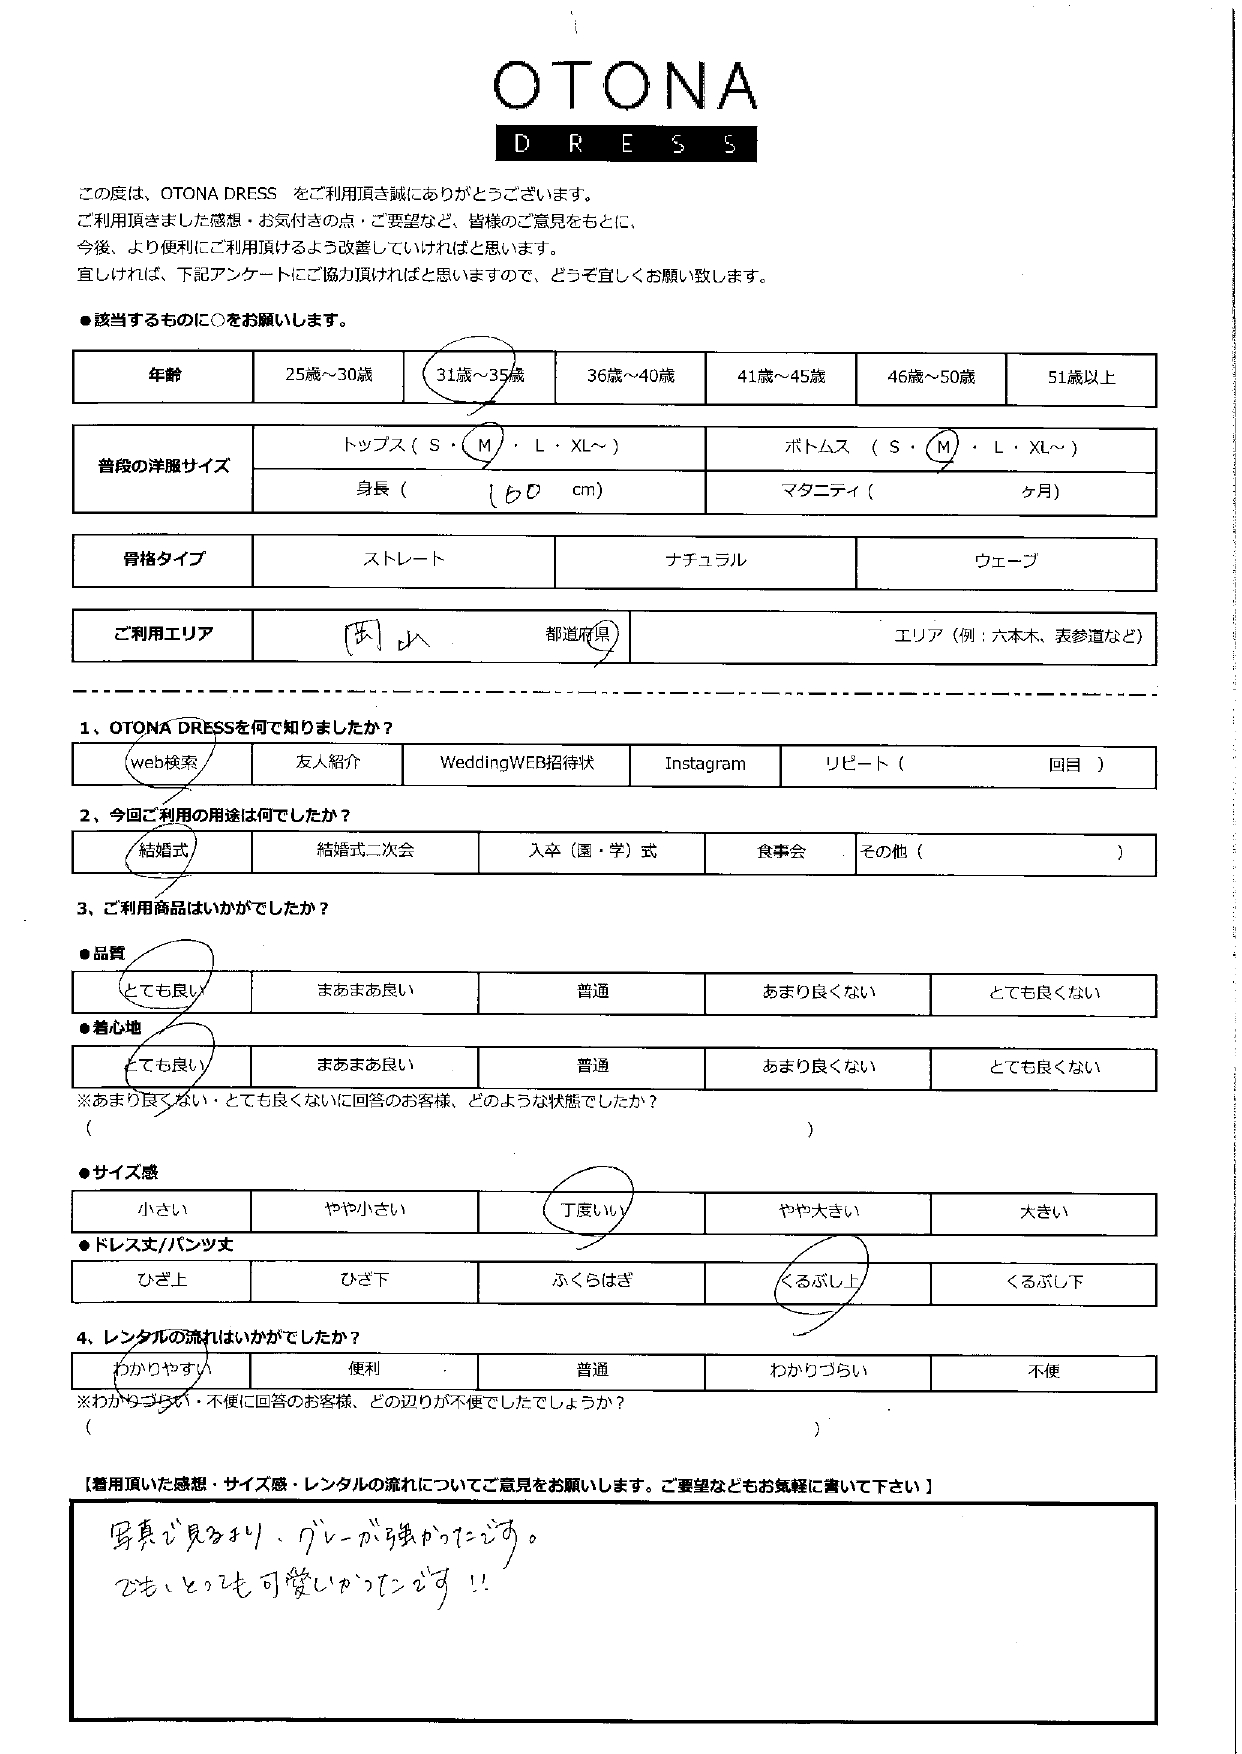 OTONA
DRESS
この度は、OTONA DRESS をご利用頂き誠にありがとうございます。
ご利用頂きました感想・お気付きの点・ご要望など、皆様のご意見をもとに、
今後、より便利にご利用頂けるよう改善していければと思います。
宜しければ、下記アンケートにご協力頂ければと思いますので、どうぞ宜しくお願い致します。
●該当するものに○をお願いします。
年齢 25歳～30歳 31歳～35歳 36歳～40歳 41歳～45歳 46歳～50歳 51歳以上
普段の洋服サイズ トップス ( S ・ M ・ L ・ XL～ ) ボトムス ( S ・ M ・ L ・ XL～ )
身長 ( 160 cm) マタニティ ( ヶ月)
骨格タイプ ストレート ナチュラル ウェーブ
ご利用エリア 岡山 都道府県 エリア（例：六本木、表参道など）
1、OTONA DRESSを何で知りましたか？
web検索 友人紹介 WeddingWEB招待状 Instagram リピート ( 回目 )
2、今回ご利用の用途は何でしたか？
結婚式 結婚式二次会 入卒（園・学）式 食事会 その他 ( )
3、ご利用商品はいかがでしたか？
●品質
とても良い まあまあ良い 普通 あまり良くない とても良くない
●着心地
とても良い まあまあ良い 普通 あまり良くない とても良くない
※あまり良くない・とても良くないに回答のお客様、どのような状態でしたか？
( )
●サイズ感
小さい やや小さい 丁度いい やや大きい 大きい
●ドレス丈/パンツ丈
ひざ上 ひざ下 ふくらはぎ くるぶし上 くるぶし下
4、レンタルの流れはいかがでしたか？
わかりやすい 便利 普通 わかりづらい 不便
※わかりづらい・不便に回答のお客様、どの辺りが不便でしたでしょうか？
( )
【着用頂いた感想・サイズ感・レンタルの流れについてご意見をお願いします。ご要望などもお気軽に書いて下さい】
写真で見るより、グレーが強かったです。
でも、とっても可愛いかったです!!